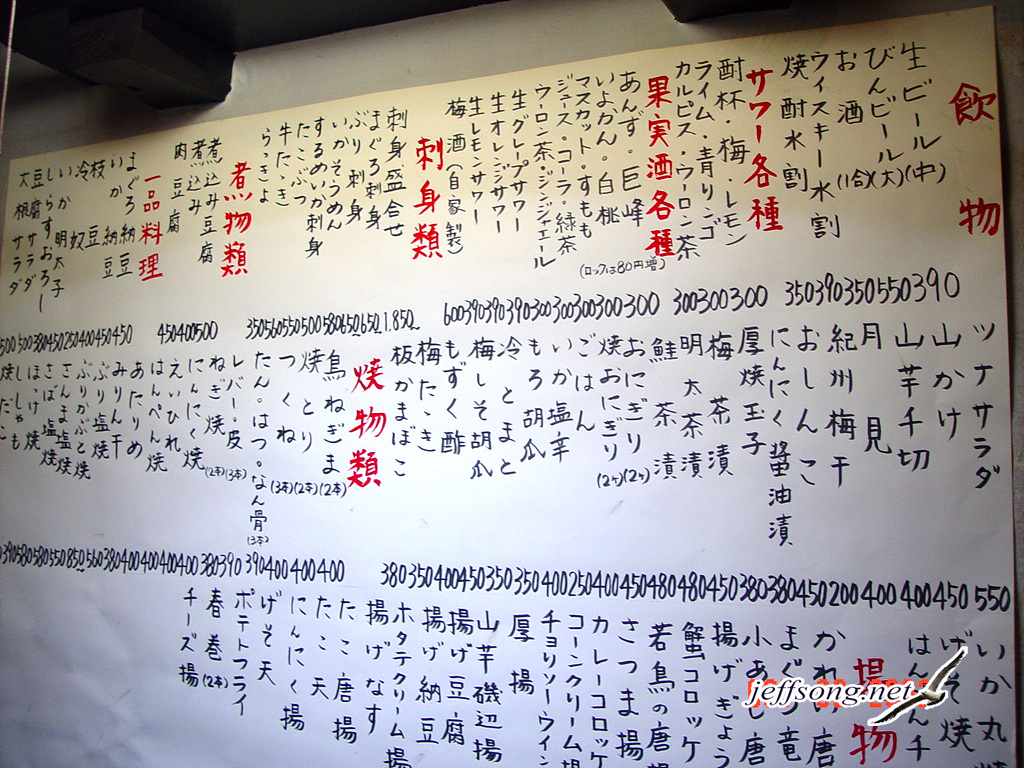 飲物
生ビール(中)
びんビール(大)
お酒(1合)
ウィスキー水割
焼酎水割
サワー各種
酎杯・梅・レモン
ライム・青りんゴ
カルピス・ウーロン茶
果実酒各種
(ロックは80円増)
あんず・巨峰
いよかん・白桃
マスカット・すもも
ジュース・コーラ・緑茶
ウーロン茶・ジンジャエール
生グレープサワー
生オレンジサワー
生レモンサワー
梅酒(自家製)
刺身類
刺身盛合せ
まぐろ刺身
ぶり刺身
いかそうめん
するめいか刺身
たこぶつ
牛たたき
らっきょ
煮物類
煮込み豆腐
煮込み
肉豆腐
一品料理
まぐろ納豆
いか納豆
枝豆
冷奴
いか明太子
しらすおろし
豆腐サラダ
大根サラダ
390
550
350
390
350
300
300
300
300
300
300
300
300
390
390
390
600
1.850
650
650
580
500
550
560
350
500
400
450
450
450
400
250
450
380
500
500
ツナサラダ
山かけ
山芋千切
月見
紀州梅干
おしんこ
にんにく醤油漬
厚焼玉子
梅茶漬
明太茶漬
鮭茶漬
おにぎり(2ケ)
焼おにぎり(2ケ)
ごはん
いか塩辛
もろ胡瓜
冷しとまと
梅しそ胡瓜
もずく酢
梅たたき
板かまぼこ
焼物類
鳥ねぎま(2本)
焼とり(2本)
つくね(3本)
たん・はつ・なん骨(3本)
レバー・皮(3本)
ねぎ焼(2本)
にんにく焼
えいひれ
はんぺん焼
あたりめ
みりん干
550
450
400
400
200
450
380
380
450
480
480
450
400
250
400
350
350
450
400
350
380
400
400
400
390
390
380
400
400
400
400
380
560
850
550
580
580
390
いか丸焼
げそ焼
はんチ
揚物
かれい唐
まぐろ竜
小あじ唐
揚げぎょう
蟹コロッケ
若鳥の唐
さつま揚
カレーコロッケ
コーンクリーム揚
チョリソーウイン
厚揚
山芋磯辺揚
揚げ豆腐
揚げ納豆
ホタテクリーム揚
揚げなす
たこ唐揚
たこ天
にんにく揚
げそ天
ポテトフライ
春巻(2本)
チーズ揚
jeffsong.net